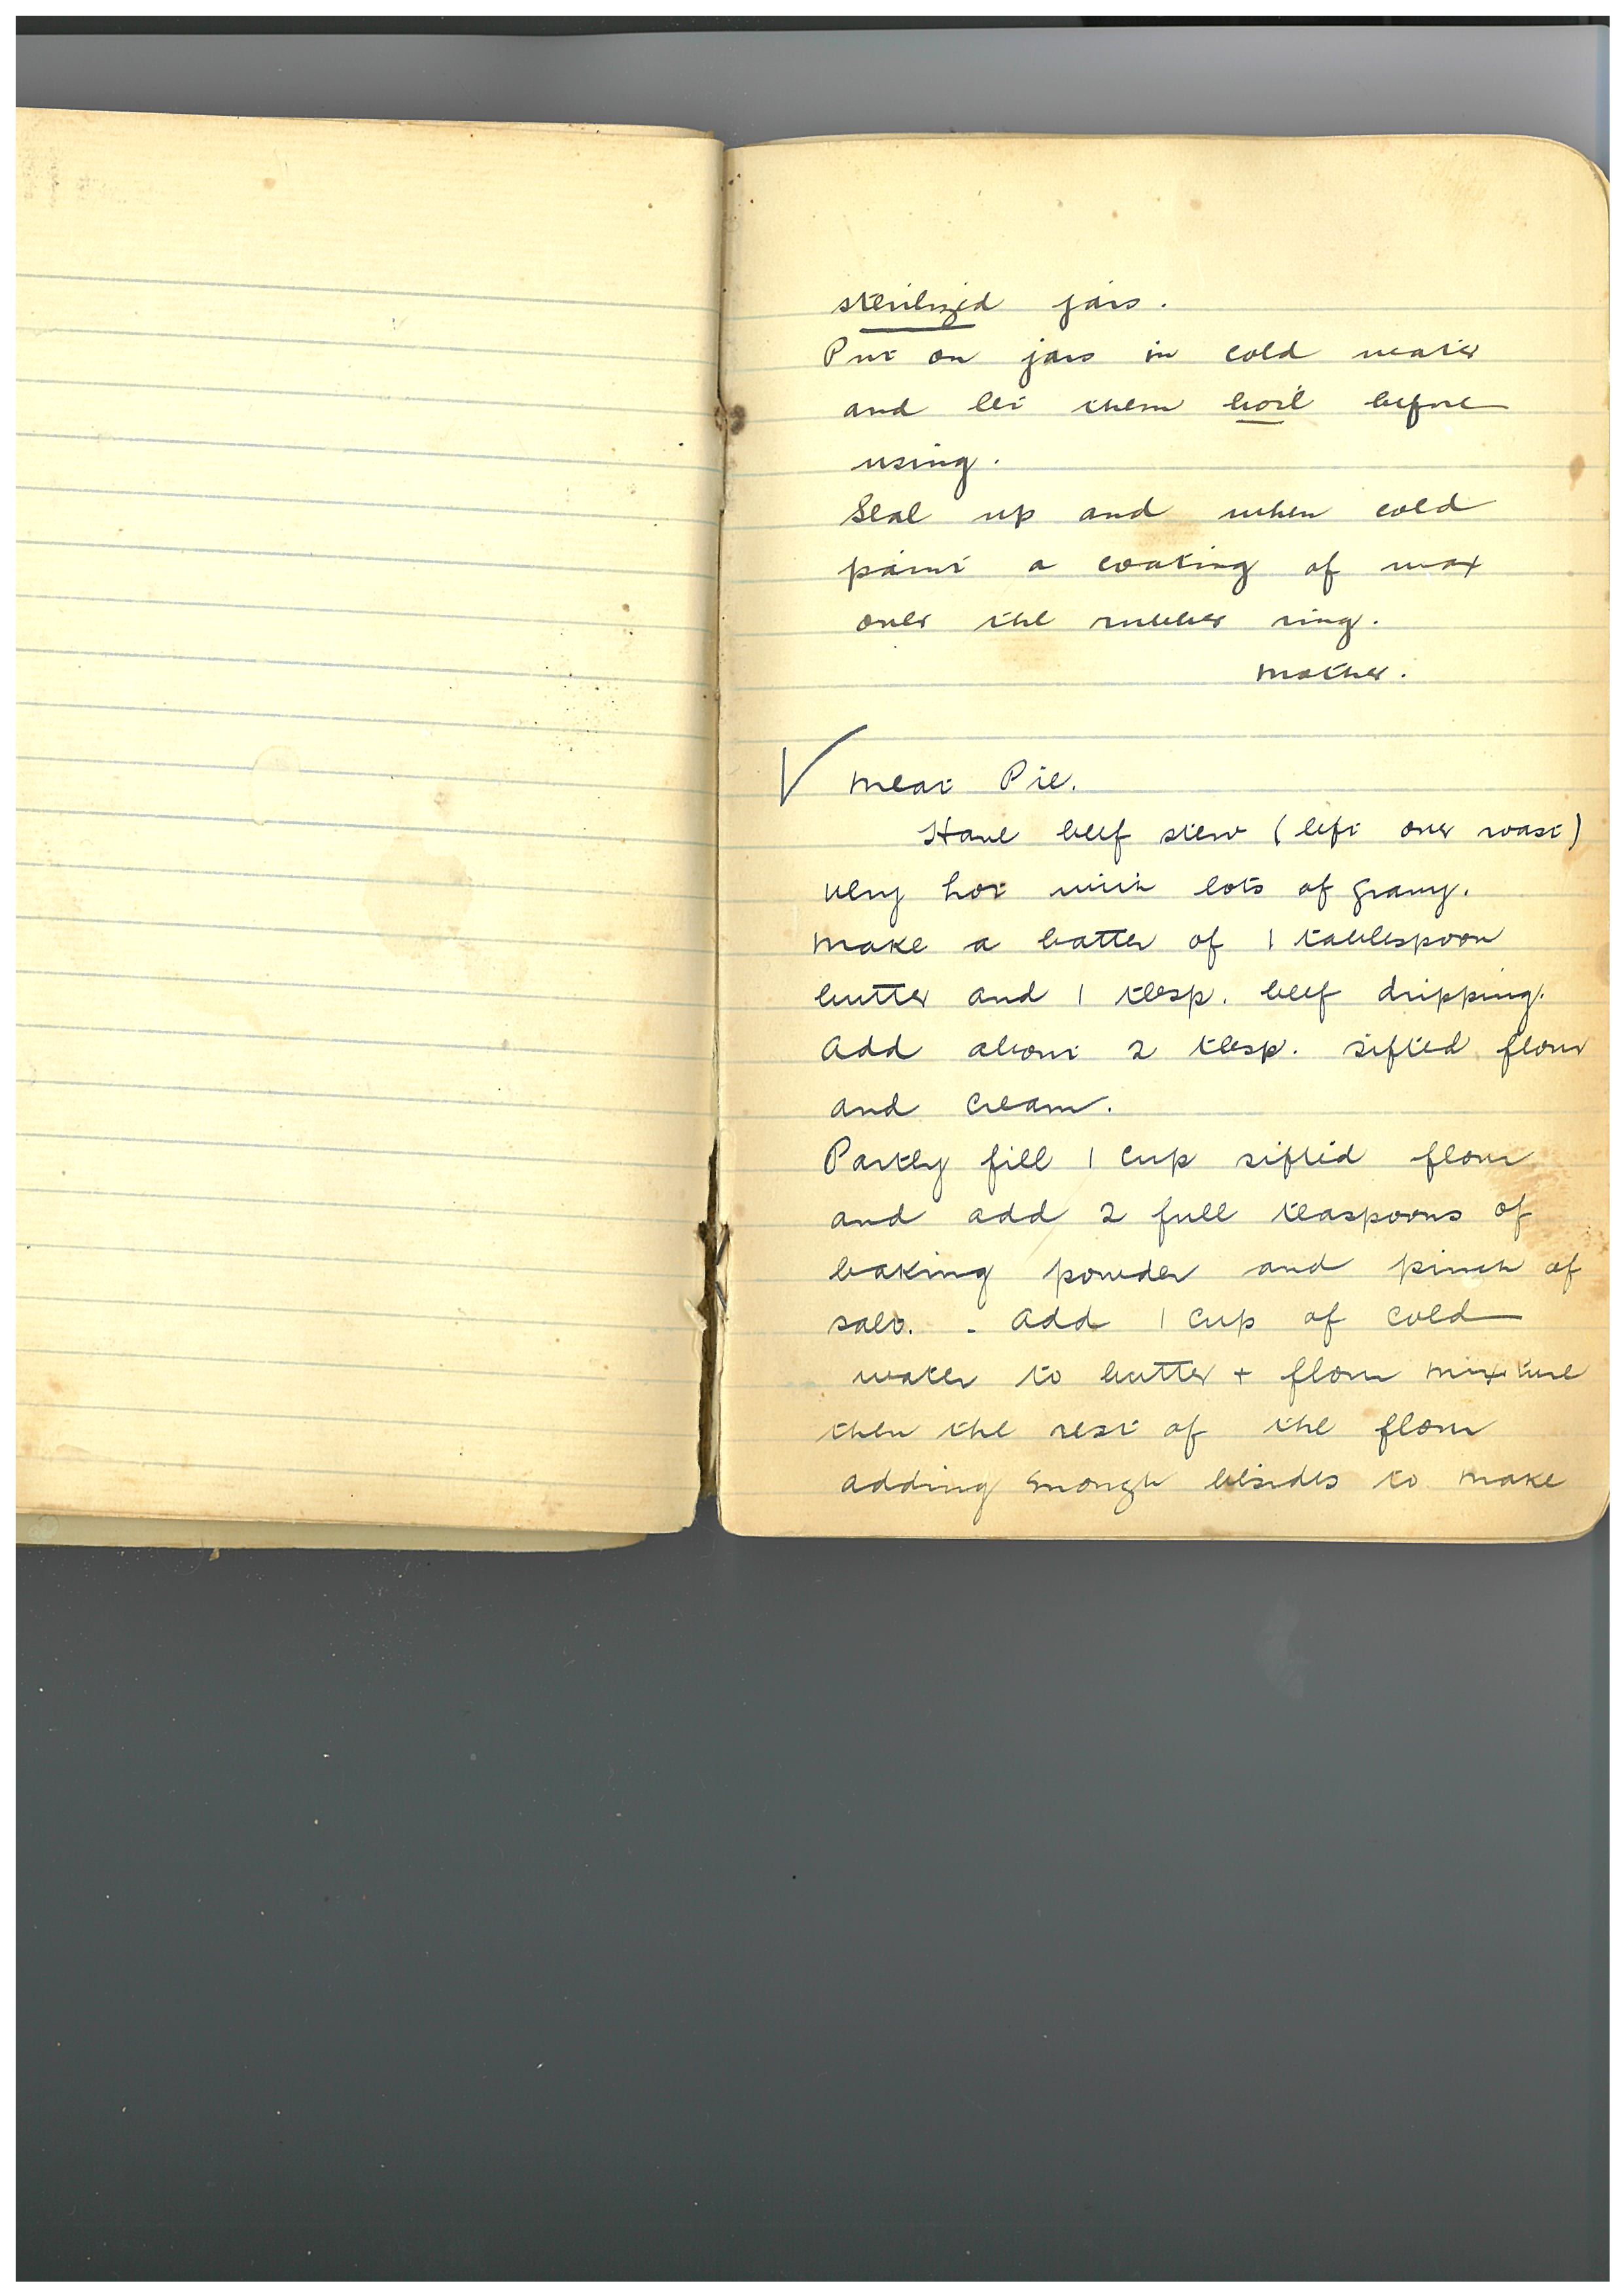 sterilized jars.
Put on jars in cold water
and let them boil before
using.
Seal up and when cold
paint a coating of wax
over the rubber ring.
Mother.
✓ Meat Pie.
Have beef stew (left over roast)
very hot with lots of gravy.
Make a batter of 1 tablespoon
butter and 1 tbsp. beef dripping.
Add about 2 tbsp. sifted flour
and cream.
Partly fill 1 cup sifted flour
and add 2 full teaspoons of
baking powder and pinch of
salt. - Add 1 cup of cold
water to butter + flour mixture
then the rest of the flour
adding enough besides to make